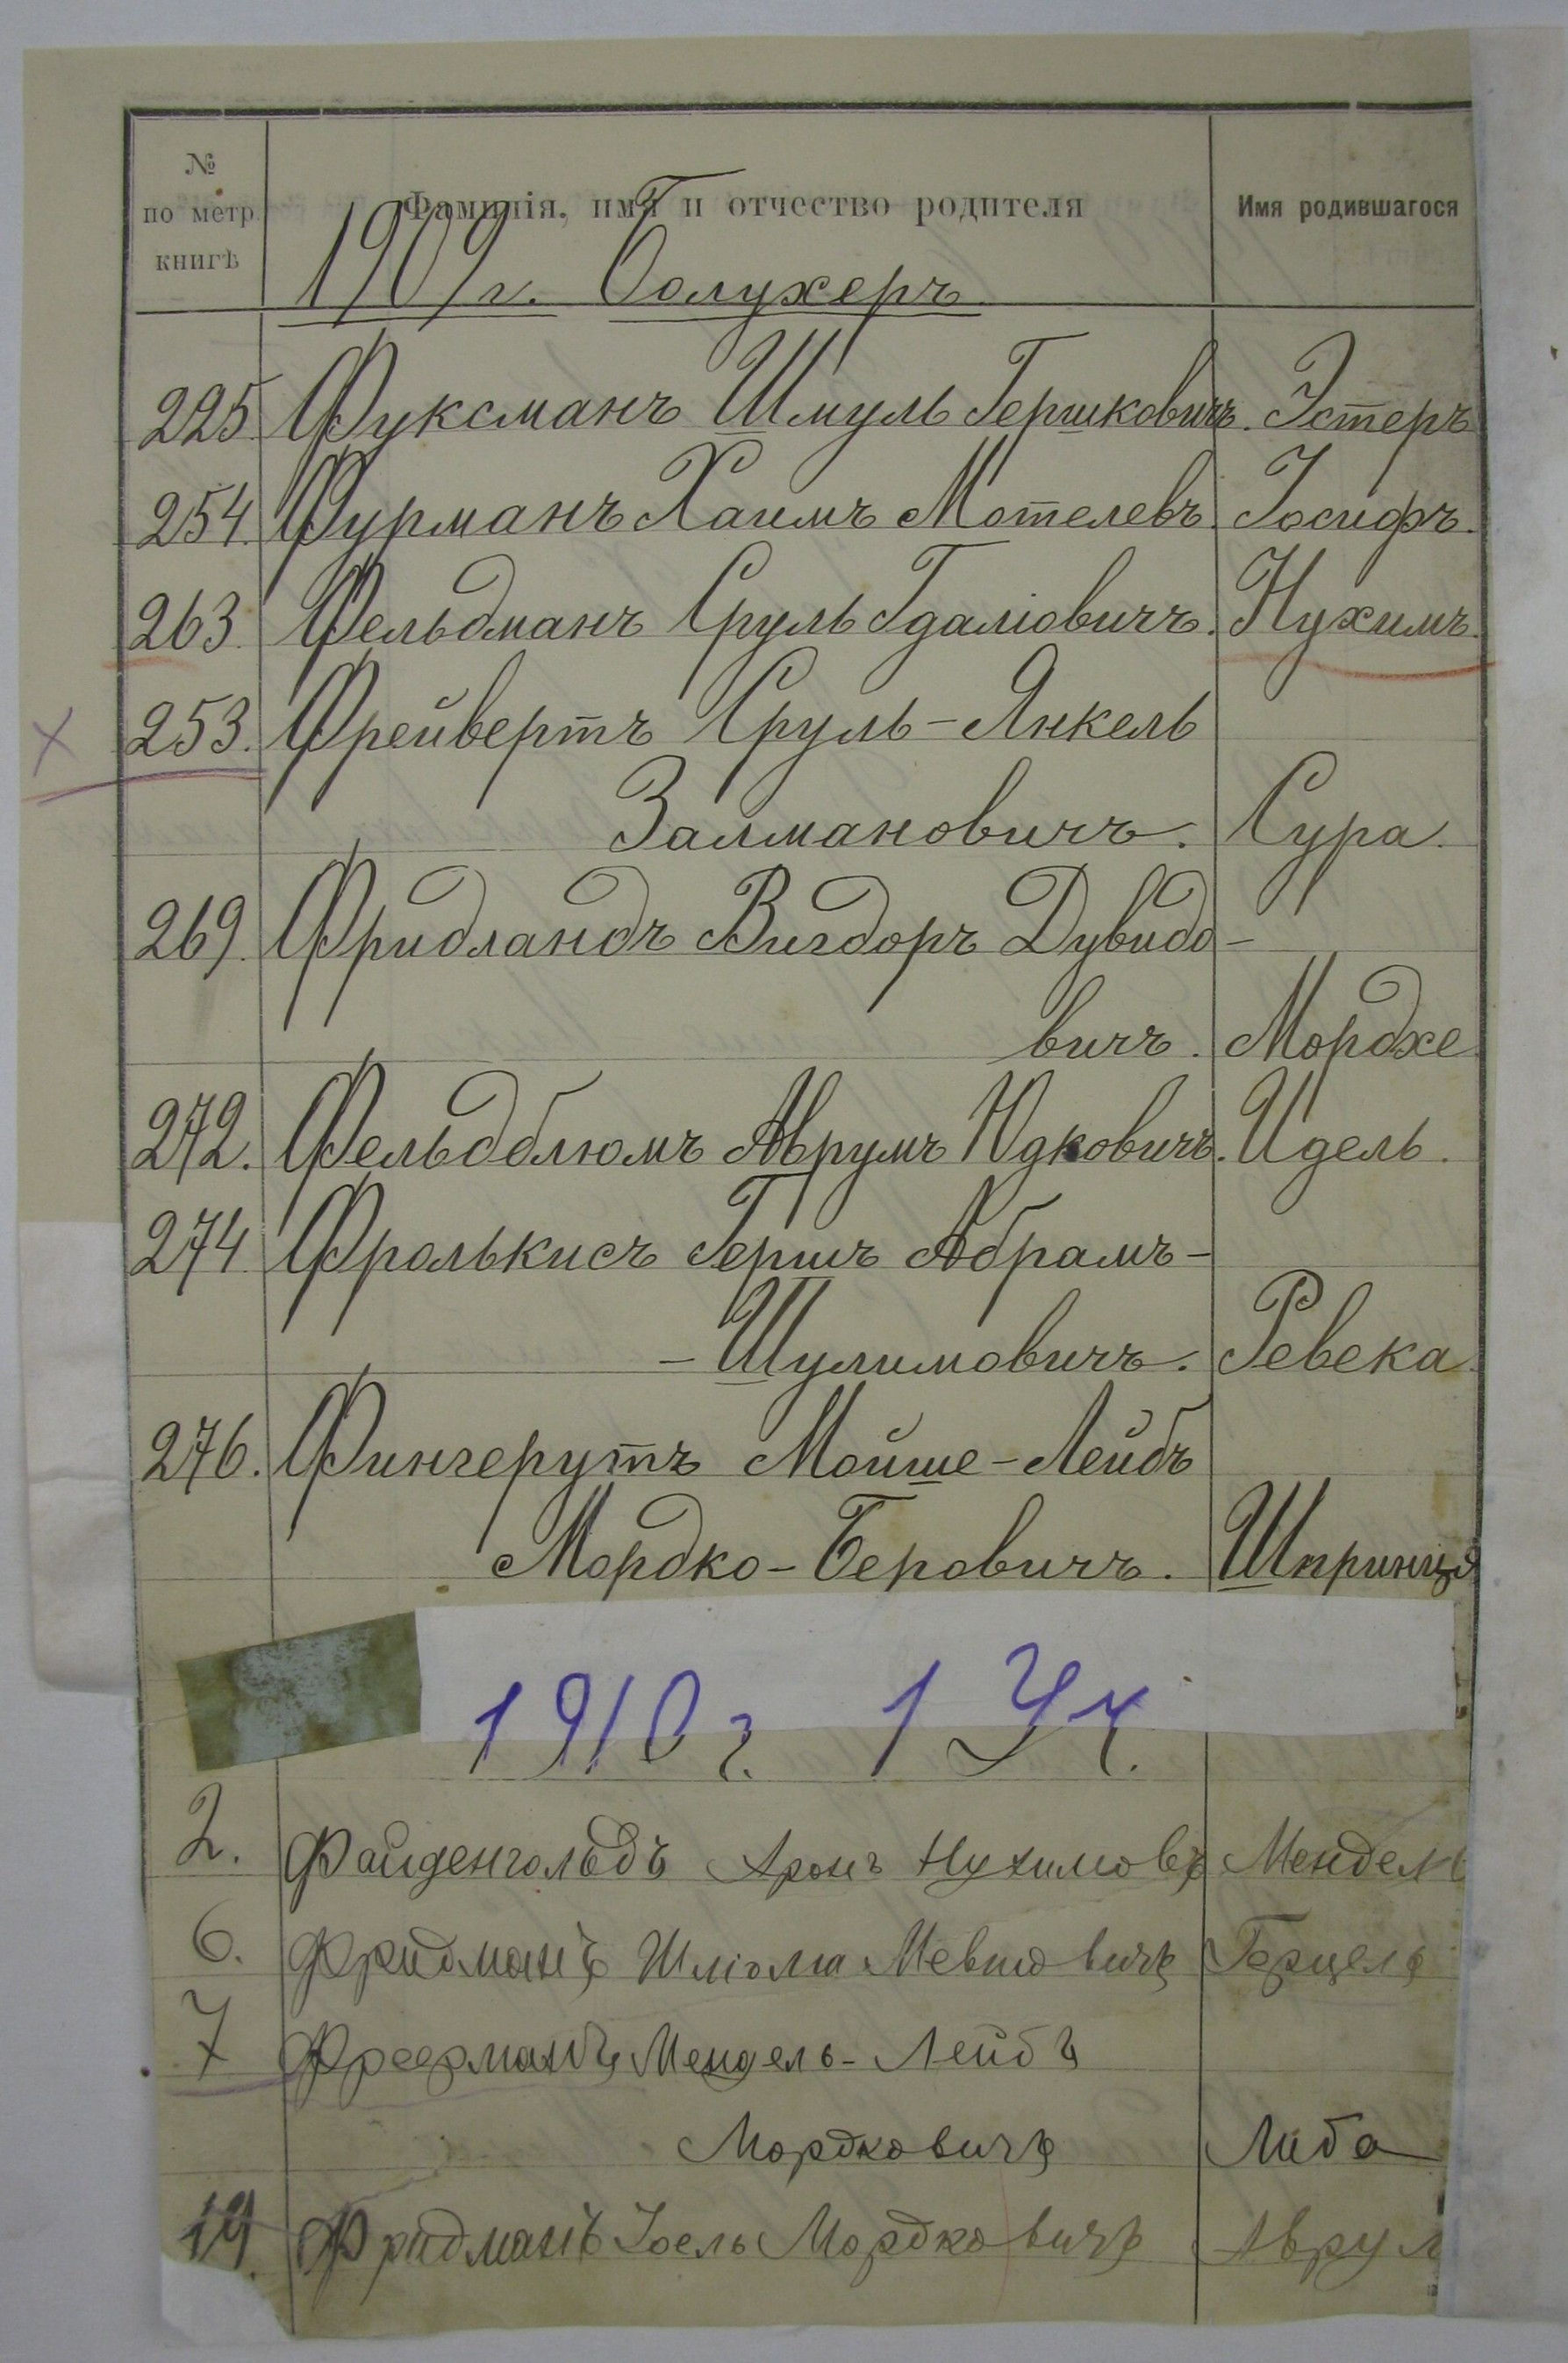 № по метр. книгѣ Фамилія, имя и отчество родителя Имя родившагося
1909 г.
225. Фуксманъ Шмуль Гершковичъ. Эстеръ
254. Фурманъ Хаимъ Мотелевъ. Іосифъ.
263. Фельдманъ Сруль Гдаліовичъ. Нухимъ.
253. Фрейвертъ Сруль-Янкель
Залмановичъ. Сура.
269. Фридландъ Вигдоръ Дувидо-
вичъ. Мордхе
272. Фельдблюмъ Аврумъ Юдковичъ. Идель.
274 Фролькисъ Гершъ Абрамъ-
-Шулимовичъ. Ревека.
276. Фингерутъ Мойше-Лейбъ
Мордко-Беровичъ. Шпринця
1910 г. 1 Уч.
2. Файденгольдъ Аронъ Нухимовъ Мендель
6. Фридманъ Шліома Мевшовичъ Герцель
7 Фреерманъ Мендель-Лейбъ
Мордковичъ Либа
19. Фридманъ Іоель Мордковичъ Аврум